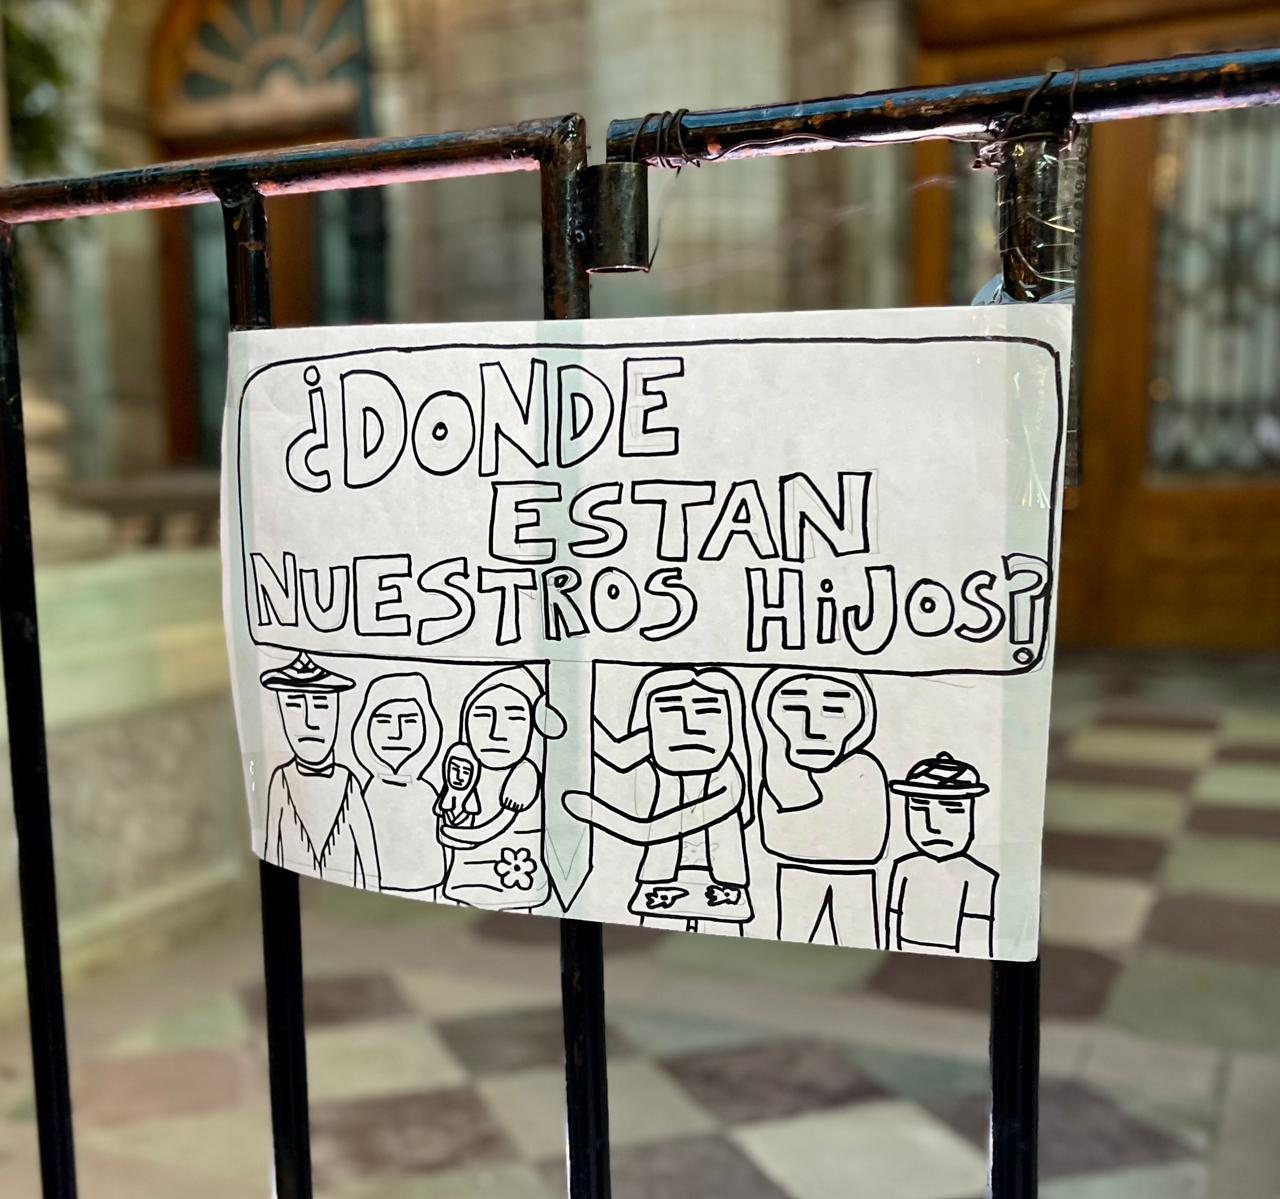 ¿DONDE
ESTAN
NUESTROS HiJOS?